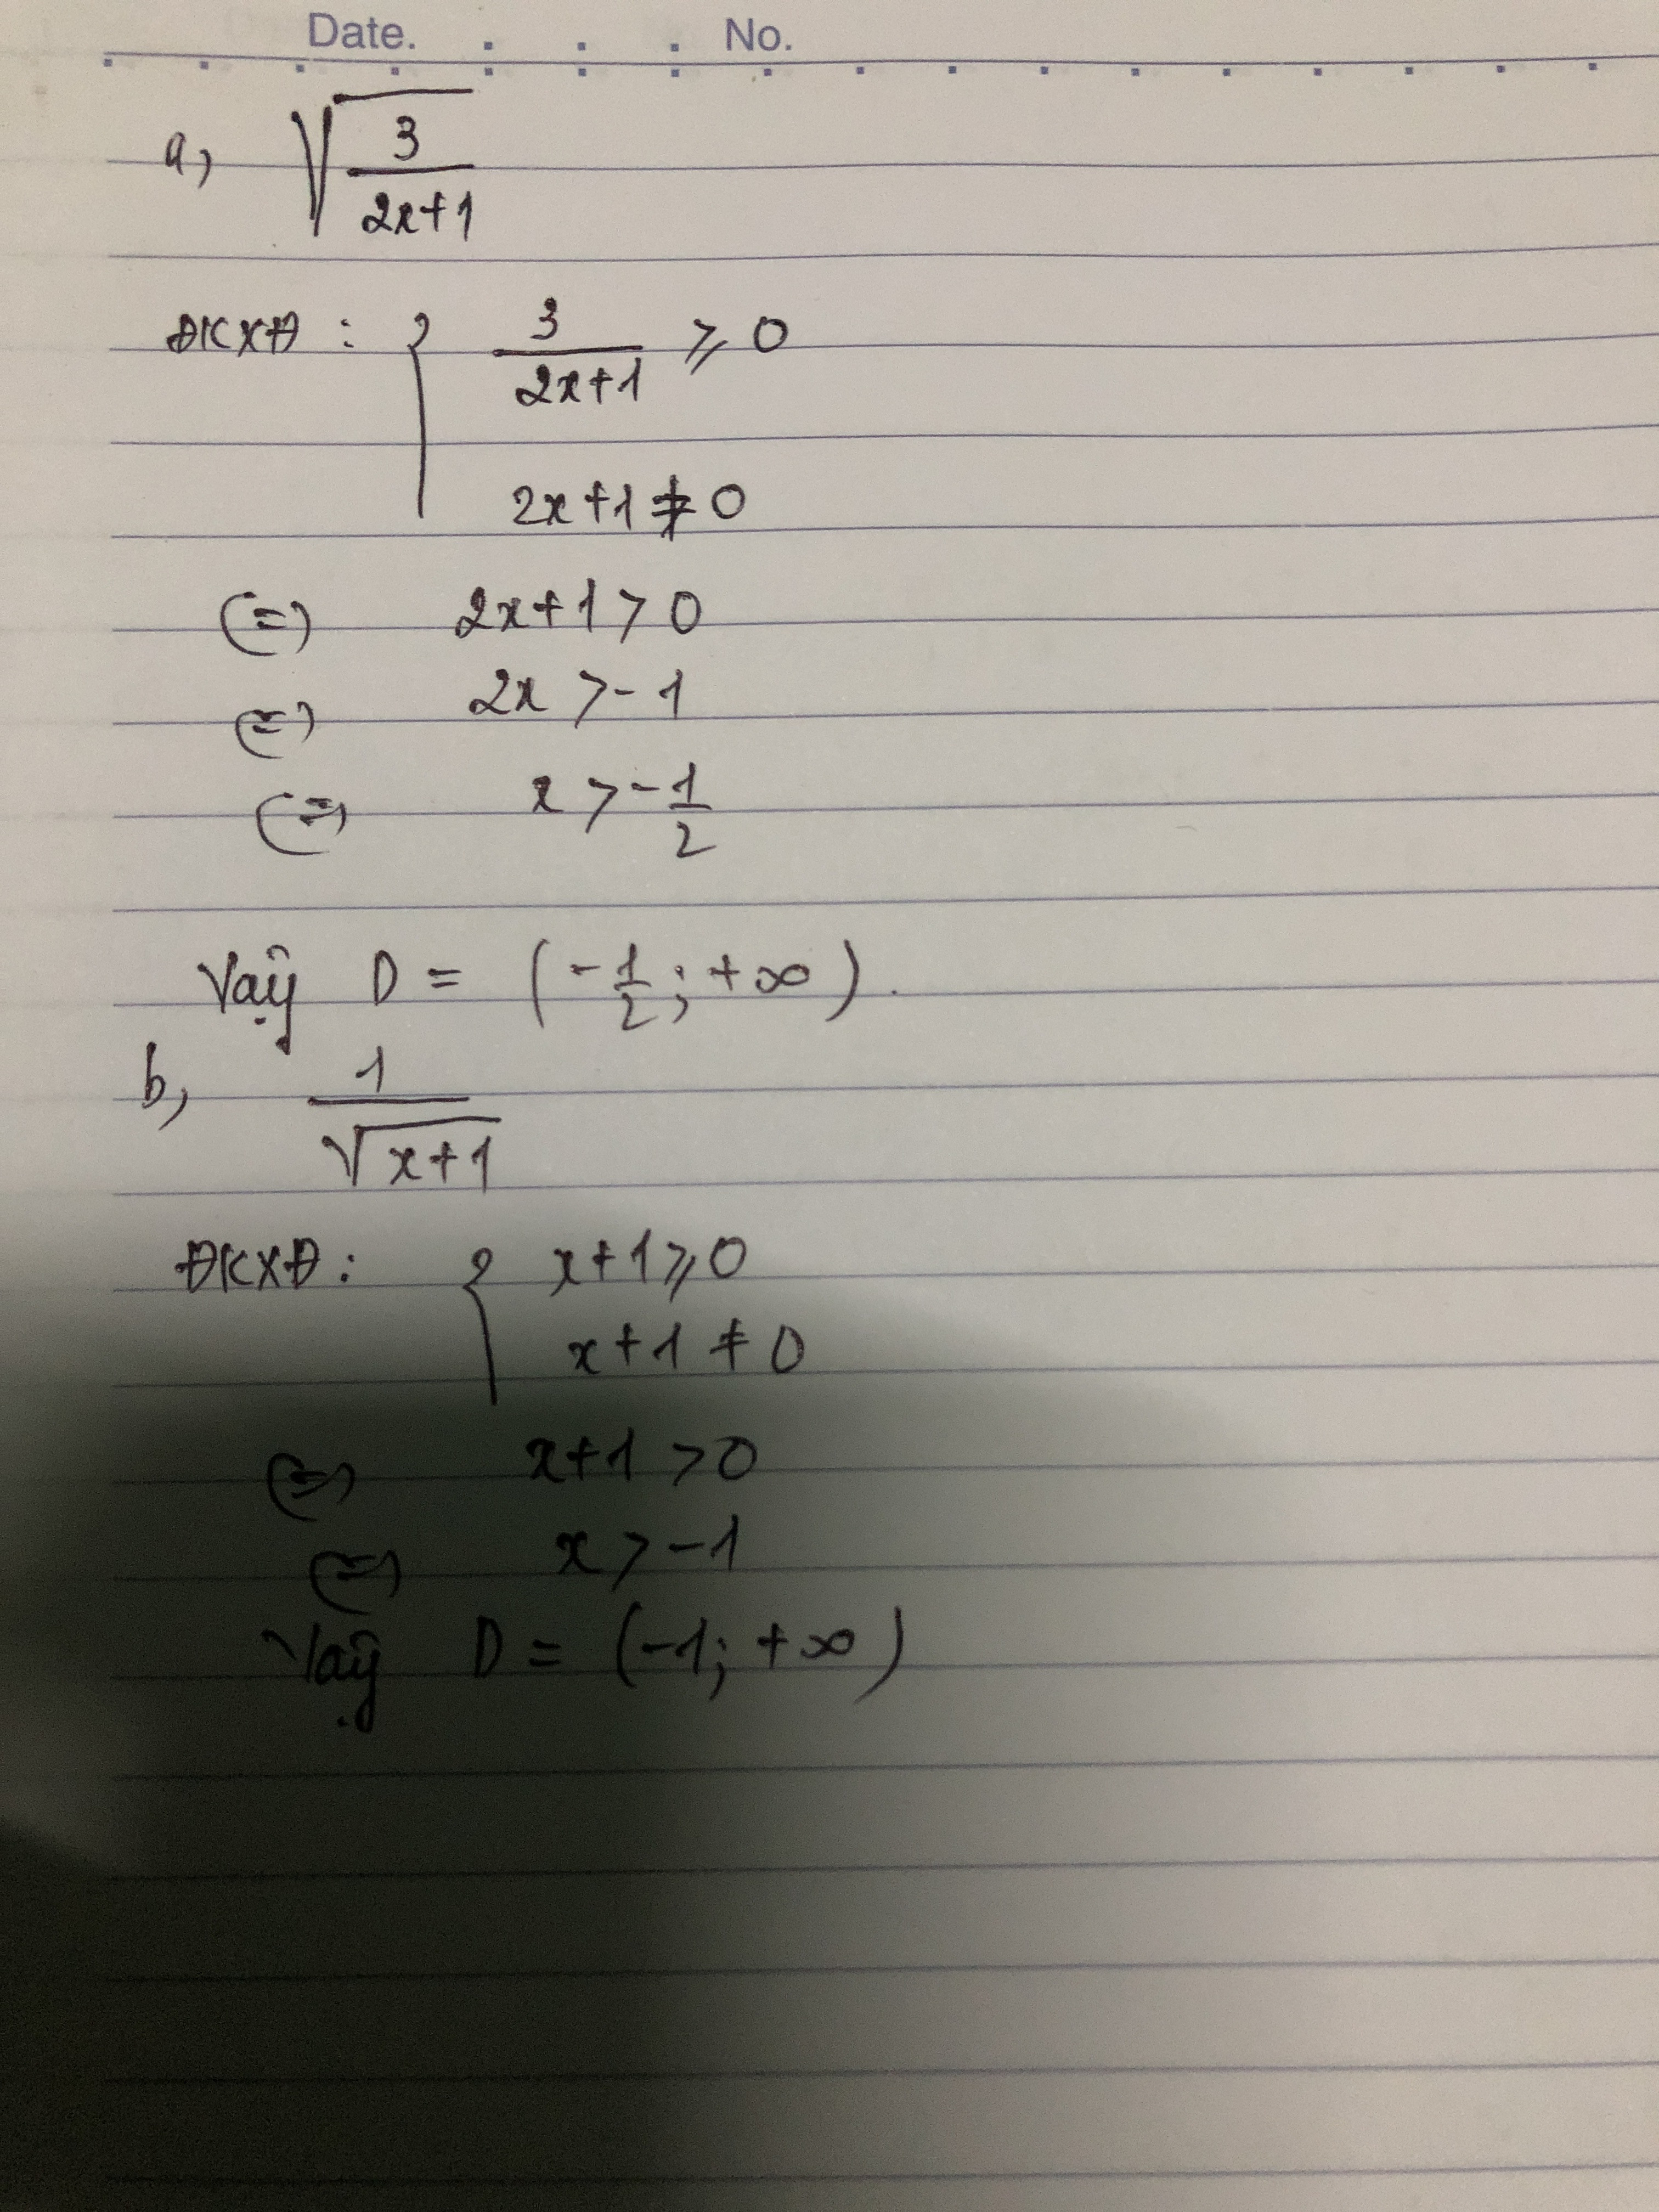 Date. . . . No.
a, √(3/(2x+1))
ĐKXĐ : { 3/(2x+1) ⩾ 0
2x+1 ≠ 0
(=) 2x+1 > 0
(=) 2x > -1
(=) x > -1/2
Vậy D = (-1/2 ; +∞).
b, 1/√(x+1)
ĐKXĐ : { x+1 ⩾ 0
x+1 ≠ 0
(=) x+1 > 0
(=) x > -1
Vậy D = (-1; +∞)